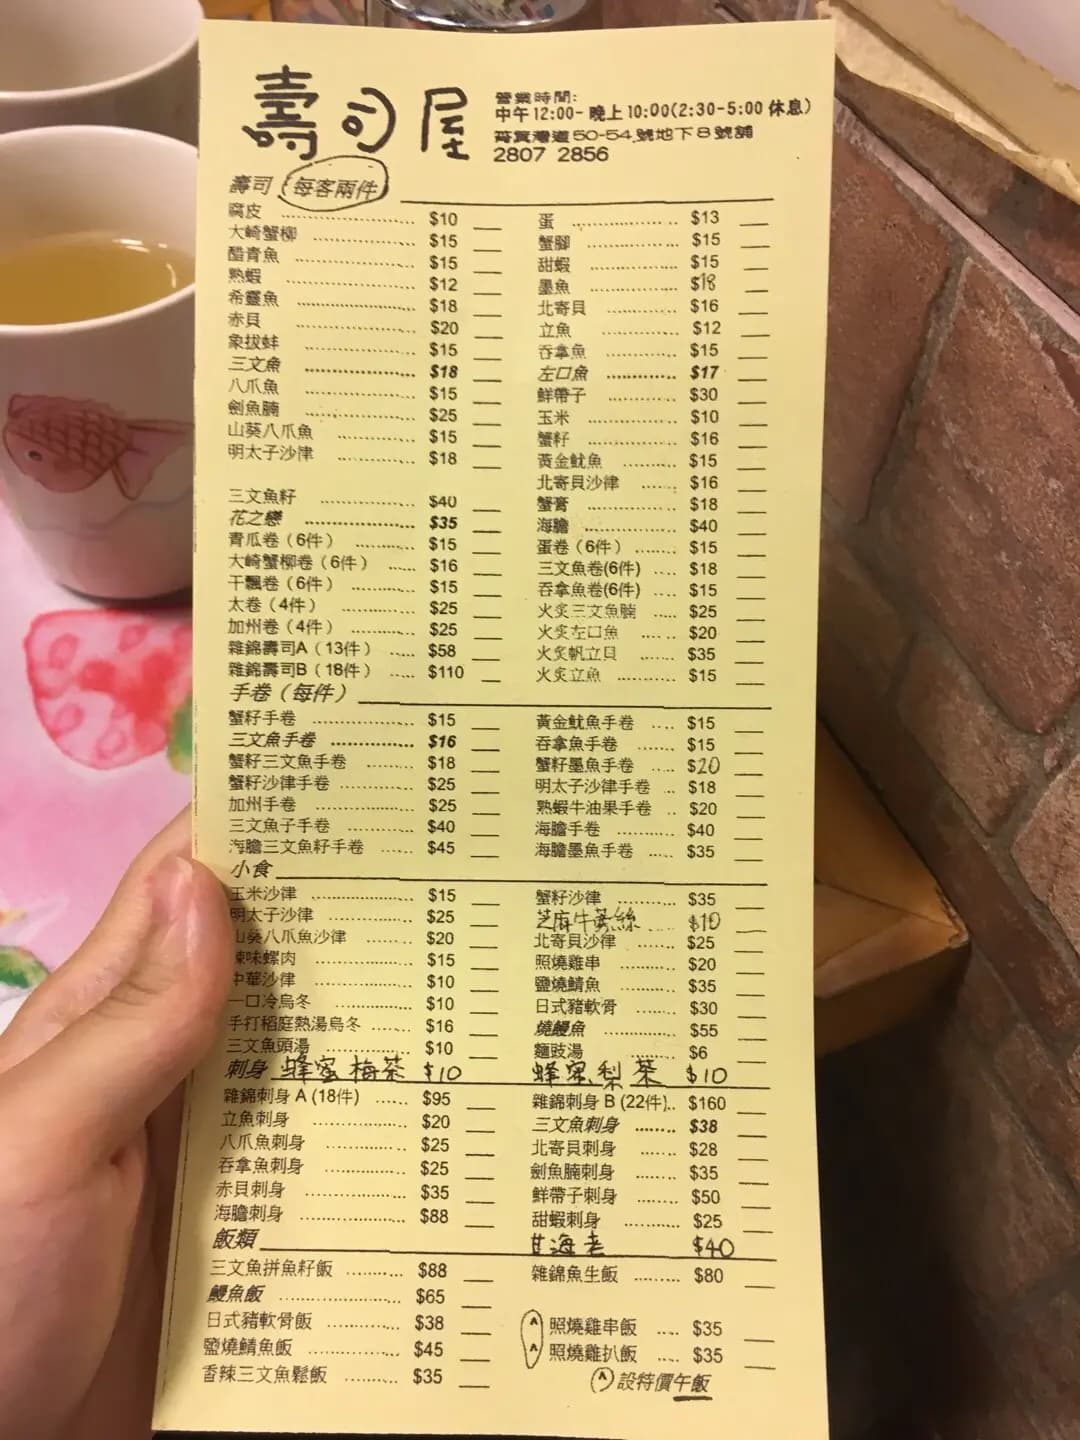 壽司屋
營業時間:
中午12:00-晚上10:00(2:30-5:00休息)
筲箕灣道50-54.號地下8號舖
2807 2856
壽司 每客兩件
腐皮 $10 蛋 $13
大崎蟹柳 $15 蟹腳 $15
醋青魚 $15 甜蝦 $15
熟蝦 $12 墨魚 $18
希靈魚 $18 北寄貝 $16
赤貝 $20 立魚 $12
象拔蚌 $15 吞拿魚 $15
三文魚 $18 左口魚 $17
八爪魚 $15 鮮帶子 $30
劍魚腩 $25 玉米 $10
山葵八爪魚 $15 蟹籽 $16
明太子沙律 $18 黃金魷魚 $15
北寄貝沙律 $16
三文魚籽 $40 蟹膏 $18
花之戀 $35 海膽 $40
青瓜卷（6件） $15 蛋卷（6件） $15
大崎蟹柳卷（6件） $16 三文魚卷(6件) $18
干瓢卷（6件） $15 吞拿魚卷(6件) $15
太卷（4件） $25 火炙三文魚腩 $25
加州卷（4件） $25 火炙左口魚 $20
雜錦壽司A（13件） $58 火炙帆立貝 $35
雜錦壽司B（18件） $110 火炙立魚 $15
手卷（每件）
蟹籽手卷 $15 黃金魷魚手卷 $15
三文魚手卷 $16 吞拿魚手卷 $15
蟹籽三文魚手卷 $18 蟹籽墨魚手卷 $20
蟹籽沙律手卷 $25 明太子沙律手卷 $18
加州手卷 $25 熟蝦牛油果手卷 $20
三文魚子手卷 $40 海膽手卷 $40
海膽三文魚籽手卷 $45 海膽墨魚手卷 $35
小食
玉米沙律 $15 蟹籽沙律 $35
明太子沙律 $25 芝麻牛蒡絲 $10
山葵八爪魚沙律 $20 北寄貝沙律 $25
辣味螺肉 $15 照燒雞串 $20
中華沙律 $10 鹽燒鯖魚 $35
一口冷烏冬 $10 日式豬軟骨 $30
手打稻庭熱湯烏冬 $16 燒鰻魚 $55
三文魚頭湯 $10 麵豉湯 $6
刺身 蜂蜜梅茶 $10 蜂蜜梨茶 $10
雜錦刺身 A (18件) $95 雜錦刺身 B (22件) $160
立魚刺身 $20 三文魚刺身 $38
八爪魚刺身 $25 北寄貝刺身 $28
吞拿魚刺身 $25 劍魚腩刺身 $35
赤貝刺身 $35 鮮帶子刺身 $50
海膽刺身 $88 甜蝦刺身 $25
飯類 甘海老 $40
三文魚拼魚籽飯 $88 雜錦魚生飯 $80
鰻魚飯 $65
日式豬軟骨飯 $38 ^照燒雞串飯 $35
鹽燒鯖魚飯 $45 ^照燒雞扒飯 $35
香辣三文魚鬆飯 $35 ^設特價午飯